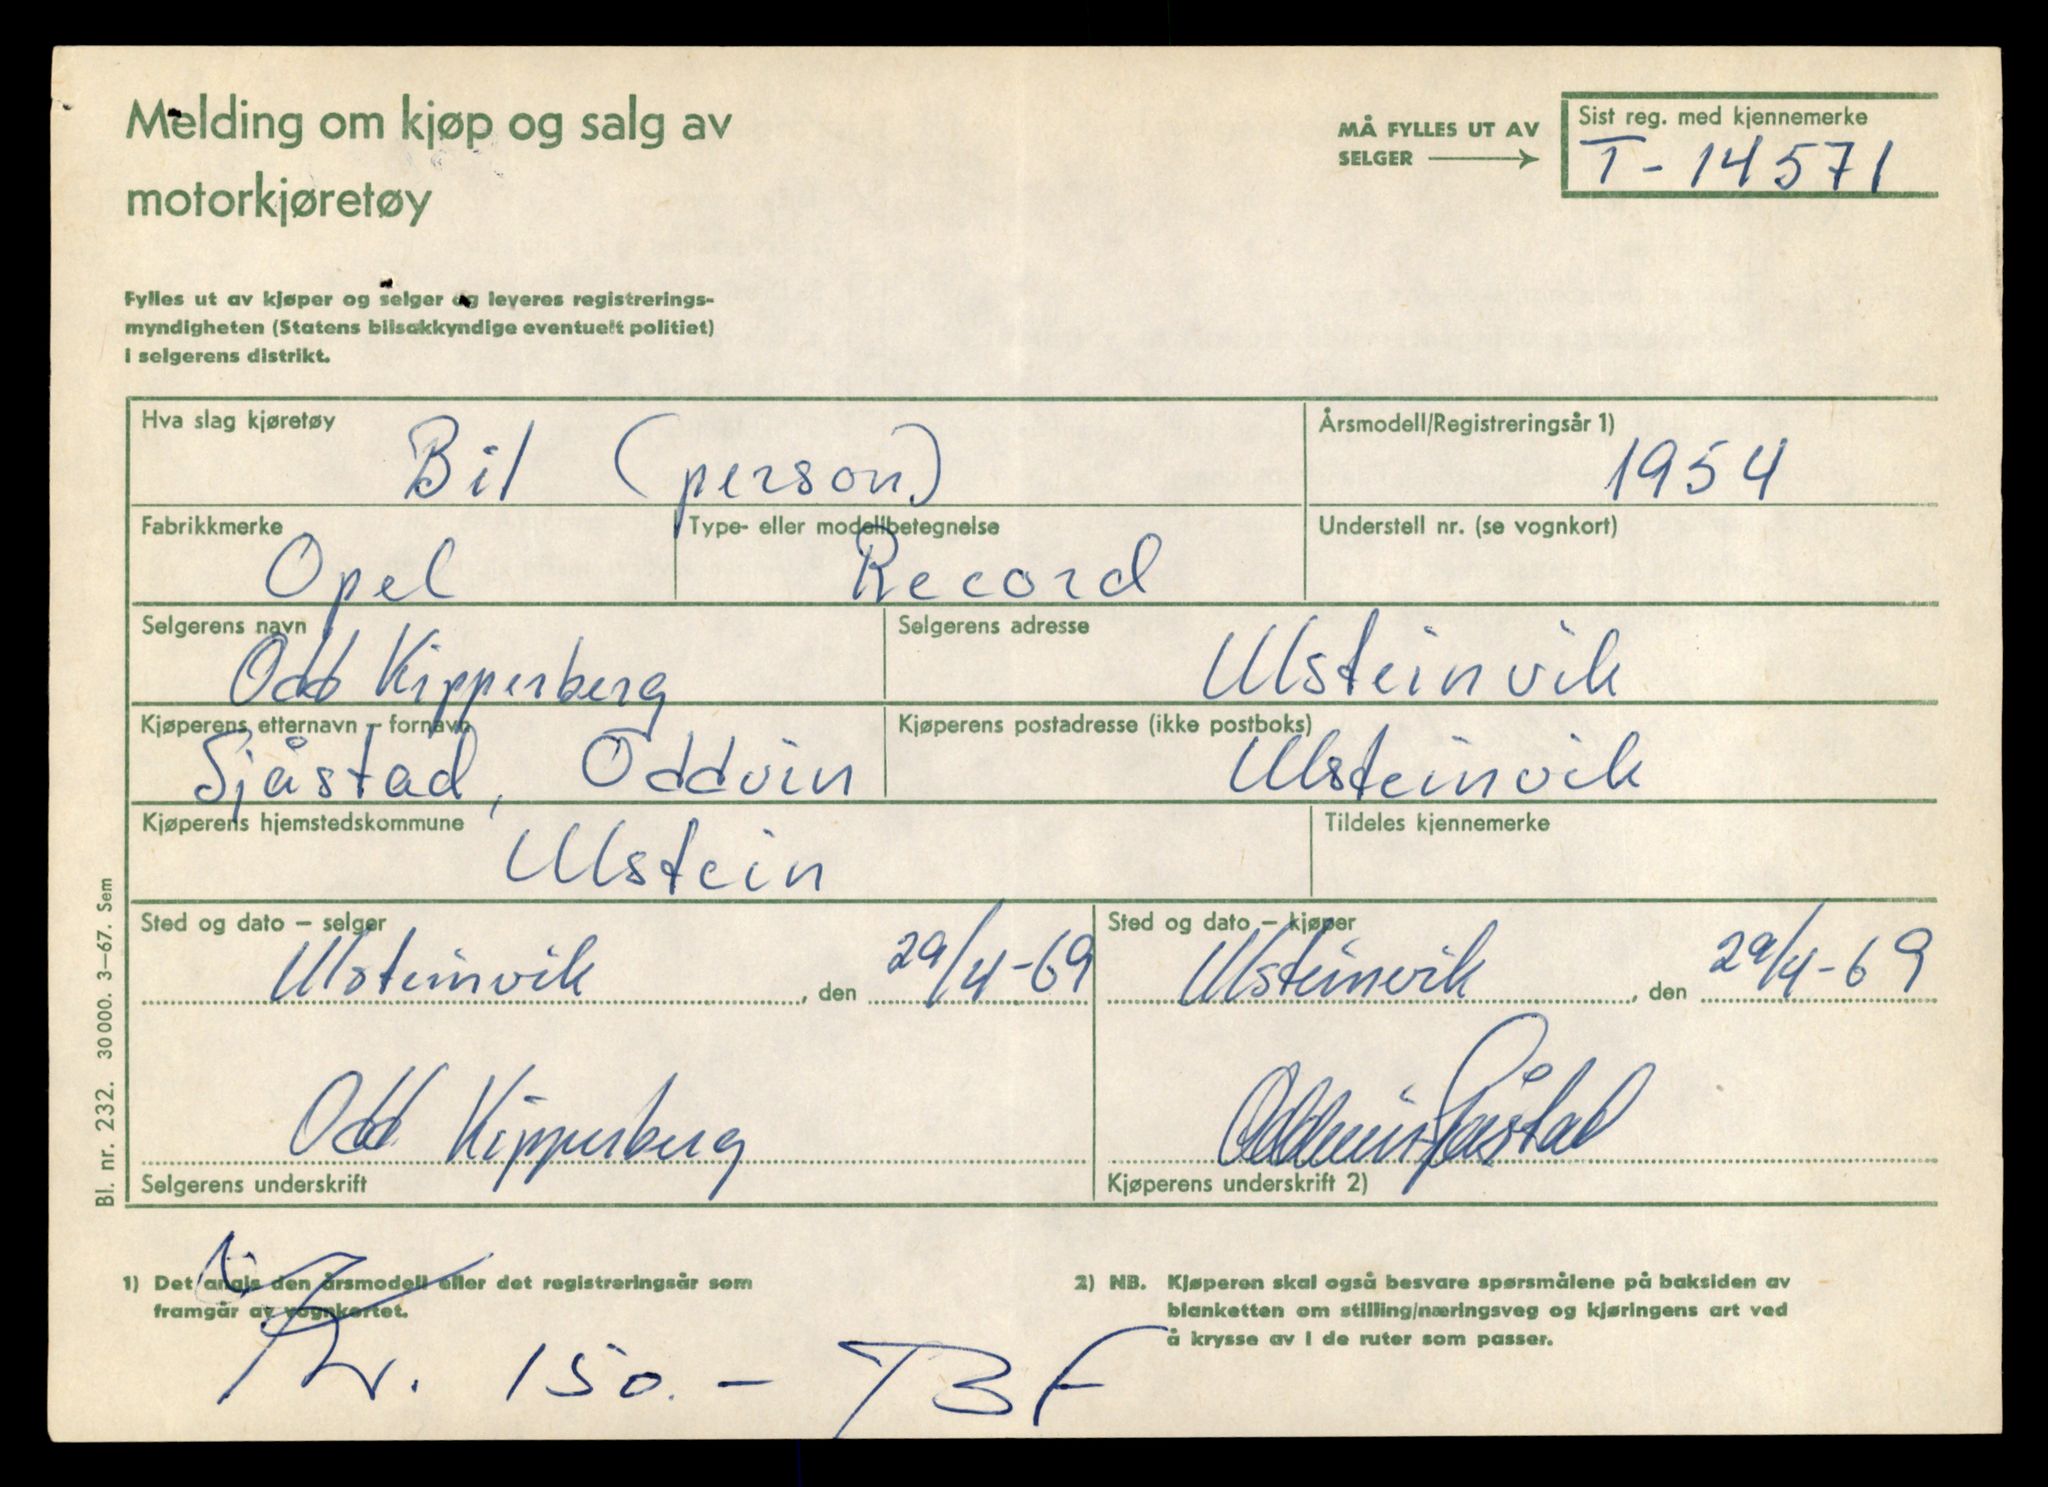 Melding om kjøp og salg av
motorkjøretøy
MÅ FYLLES UT AV
SELGER
Sist reg. med kjennemerke
T-14571
Fylles ut av kjøper og selger og leveres registrerings-
myndigheten (Statens bilsakkyndige eventuelt politiet)
i selgerens distrikt.
Hva slag kjøretøy
Bil (person)
Årsmodell/Registreringsår 1)
1954
Fabrikkmerke
Opel
Type- eller modellbetegnelse
Record
Understell nr. (se vognkort)
Selgerens navn
Odd Kipperberg
Selgerens adresse
Ulsteinvik
Kjøperens etternavn – fornavn
Sjåstad, Oddvin
Kjøperens postadresse (ikke postboks)
Ulsteinvik
Kjøperens hjemstedskommune
Ulstein
Tildeles kjennemerke
Sted og dato – selger
Ulsteinvik, den 29/4-69
Sted og dato – kjøper
Ulsteinvik, den 29/4-69
Odd Kipperberg
Selgerens underskrift
Oddvin Sjåstad
Kjøperens underskrift 2)
Bl. nr. 232. 30 000. 3–67. Sem
1) Det angis den årsmodell eller det registreringsår som
framgår av vognkortet.
2) NB. Kjøperen skal også besvare spørsmålene på baksiden av
blanketten om stilling/næringsveg og kjøringens art ved
å krysse av i de ruter som passer.
Kr. 150.- TBF